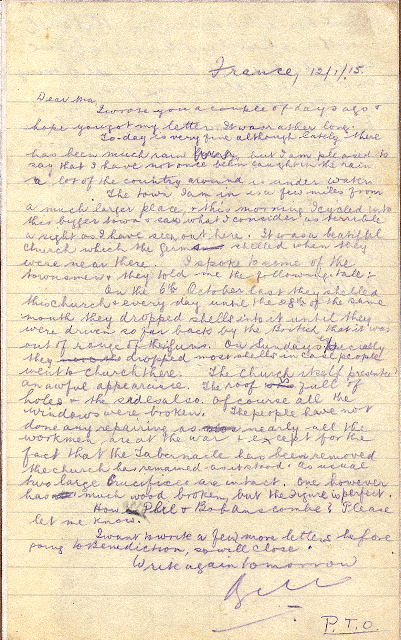 France, 12/1/15.
Dear Ma,
I wrote you a couple of days ago &
hope you got my letter. It was rather long.
To-day is very fine although lately there
has been much rain but I am pleased to
say that I have not once been caught in the rain
a lot of the country around is under water.
The town I am in is a few miles from
a much larger place, & this morning I cycled into
this bigger town & saw what I consider as terrible
a sight as I have seen out here. It was a beautiful
church which the germ shelled when they
were near there. I spoke to some of the
townsmen & they told me the following tale:
On the 6th October last they shelled
this church & every day until the 28th of the same
month they dropped shells into it until they
were driven so far back by the British that it was
out of range of their guns. On Sundays specially
they dropped most shells in case people
went to church there. The Church itself presents
an awful appearance. The roof is full of
holes & the sides also. Of course all the
windows were broken. The people have not
done any repairing as nearly all the
workmen are at the war & except for the
fact that the Tabernacle has been removed
the church has remained as it stood. As usual
two large Crucifixes are intact. One however
has much wood broken, but the Figure is perfect.
How is Phil & Please
let me know.
I want to write a few more letters before
going to Benediction, so will close.
Write again tomorrow
Bill
P.T.O.